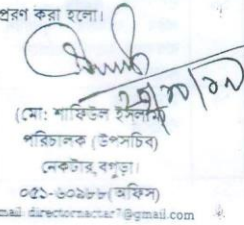 প্রেরণ করা হলো।
(মো: শাফিউল ইসলাম)
পরিচালক (উপসচিব)
নেকটার, বগুড়া।
০৫১-৬০৯৮৮(অফিস)
mail directornactar7@gmail.com